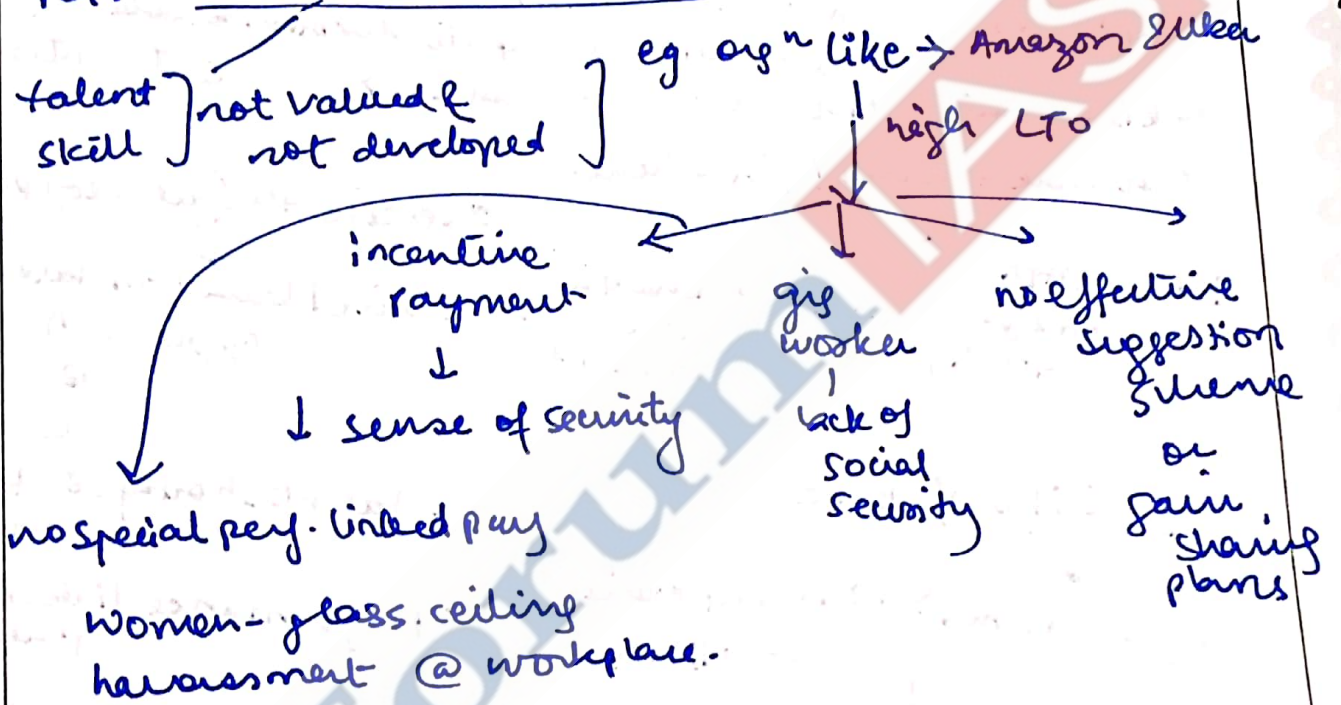 talent ] not valued & ]
skill ] not developed ]
eg. orgⁿ like → Amazon & Uber
↓ high LTO
incentive
payment
↓
↓ sense of security
gig
worker
lack of
social
security
no effective
suggestion
scheme
or
gain
sharing
plans
no special perf. linked pay
women - glass ceiling
harassment @ workplace.
forum IAS